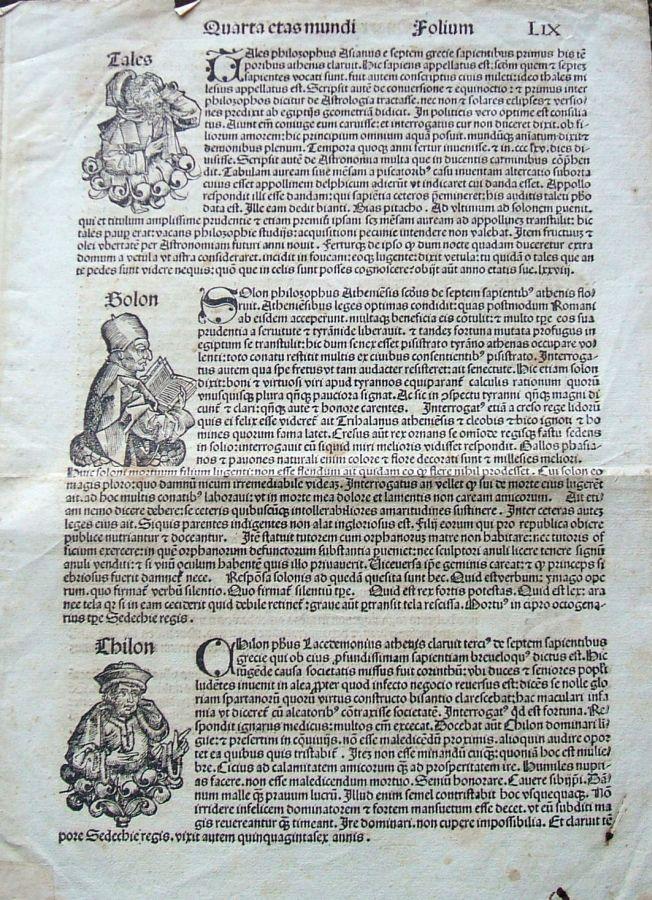 Quarta etas mundi Folium LIX
Tales
TAles philosophus Asianus e septem grecie sapientibus primus his tē
poribus athenis claruit. Hic sapiens appellatus est: scōm quem & septem
sapientes vocati sunt. fuit autem conscriptus civis mileti: ideo thales mi
lesius appellatus est. Scripsit autē de conuersione & equinoctio: & primus inter
philosophos dicitur de Astrologia tractasse. nec non & solares eclipses & versio/
nes predixit ab egiptijs geometriā didicit. In politicis vero optime est consilia
tus. Aiunt eūm coniuge eum caruisse: et interrogatus cur non duceret dixit. ob fi/
liorum amorem: hic principium omnium aquā posuit. mundūqꝫ aīatum dixit &
demonibus plenum. Tempora quoqꝫ anni fertur inuenisse. & in. ccc lxv. dies di/
uisisse. Scripsit autē de Astronomia multa que in ducentis carminibus cōp̄hen
dit. Tabulam auream siue mēsam a piscatoribꝰ casu inuentam altercatio suborta
cuius esset appollinem delphicum adierūt vt indicaret cui danda esset. Appollo
respondit illi esse dandam: qui sapiētia ceteros p̄emineret: his auditis taleti p̄bo
data est. Ille eam dedit bianti. Bias pitacho. Ad vltimum ad solonem puenit.
qui et titulum amplissime prudentie & etiam premij ipsam mēsam auream ad appollinem transtulit: hic
tales paup erat: vacans philosophie studijs: acquisitioni pecunie intendere non valebat. Item fructuū &
olei vbertatē per Astronomiam futuri anni nouit. Ferturqꝫ de ipso ꝙ dum nocte quadam duceretur extra
domum a vetula vt astra consideraret. incidit in foueam: eoqꝫ lugente: dixit vetula: tu quidā o tales que an
te pedes sunt videre nequis: quō que in celis sunt posses cognoscere: obijt aūt anno etatis sue. lxxviij.
Solon
SOlon philosophus Atheniēsis scōus de septem sapientibꝰ athenis flo/
ruit. Atheniēsibus leges optimas condidit: quas postmodum Romani
ab eisdem acceperunt. multaqꝫ beneficia eis cōtulit: & multo tpe eos sua
prudentia a seruitute & tyrānide liberauit. & tandem fortuna mutata profugus in
egiptum se transtulit: hic dum senex esset pisistrato tyrāno athenas occupare vo/
lenti: toto conatu restitit multis ex ciuibus consentientibꝰ pisistrato. Interroga/
tus autem qua spe fretus vt tam audacter resisteret: ait senectute. Hic etiam solon
dixit: boni & virtuosi viri apud tyrannos equiparant calculis rationum quorū
vnusquisqꝫ plura qn̄qꝫ pauciora signat. Ac sic in ɔspectu tyranni qn̄qꝫ magni di
cunt & clari: qn̄qꝫ autē & honore carentes. Interrogatꝰ etiā a creso rege lidorū
quis ei felix esse videret ait Tribalanus atheniēsis & cleobis & bito ignoti & ho
mines quorum fama latet. Cresus aūt rex ornans se omi ore regisqꝫ fastu sedens
in solio: interrogauit eū siquid miri melioris vidisset respondit. Gallos phasia/
nos & pauones naturali enim colore & flore decorati sunt & milesies meliori.
Huic soloni mortuum filium lugenti: non esse flendum ait quidam eo ꝙ flere nihil prodesset. Cui solon eo
magis ploro: quo damnū meum irremediabile videas. Interrogatus an vellet ꝙ sui de morte eius lugerēt
ait. ad hoc multis conatibꝰ laboraui: vt in morte mea dolore et lamentis non caream amicorum. Ait eti/
am nemo dicere debere: se ceteris quibuscūqꝫ intollerabiliores amaritudines sustinere. Inter ceteras autem
leges eius ait. Si quis parentes indigentes non alat ingloriosus est. Filij eorum qui pro republica obiere
publice nutriantur & doceantur. Itē statuit tutorem cum orphanorum matre non habitare: nec tutoris of
ficium exercere: in quē orphanorum defunctorum substantia pueniet: nec sculptori anuli licere tenere signū
anuli venditi: & si vnū oculum habentē quis illo priuauerit. Viceuersa ip̄e geminis careat: & ꝙ princeps si
ebriosus fuerit damnet nece. Respōsa solonis ad quedā quesita sunt hec. Quid est verbum: ymago ope
rum. quo firmat verbū silentio. Quo firmat silentiū tpe. Quid est rex fortis potestas. Quid est lex: ara
nee tela qr si in eam ceciderit quid debile retinet: graue aūt ptransit tela rescissa. Mortuꝰ in cipro octogena/
rius tpe Sedechie regis.
Chilon
CHilon ph̄us Lacedemonius athenis claruit terciꝰ de septem sapientibus
grecie qui ob eius profundissimam sapientiam breueloquꝰ dictus est. Hic
iūgēde causa societatis missus fuit corinthū: vbi duces & seniores popli
ludētes inuenit in alea, propter quod infecto negocio reuersus est: dicēs se nolle glo
riam spartanorū quorū virtus constructo bisantio clarescebat: hac maculari infa
mia vt diceret eū aleatoribꝰ cōtraxisse societatē. Interrogatꝰ qd est fortuna. Re/
spondit ignarus medicus: multos em̄ excecat. Docebat aūt Chilon dominari li/
gue: & presertim in cōuiuijs. nō esse maledicendū proximis. alioquin audire opor
tet ea quibus quis tristabit. Item non esse minandū cuiqꝫ: quoniā hoc est mulie/
bre. Cicius ad calamitatem amicorum qꝫ ad prosperitatem ire. Humiles nupti/
as facere. non esse maledicendum mortuo. Seniū honorare. Cauere sibijpi. Dā/
num malle qꝫ prauum lucrū. Illud enim semel contristabit hoc vsquequaqꝫ. Nō
irridere infelicem dominatorem & fortem mansuetum esse decet. vt eū subditi ma
gis reuereantur qꝫ timeant. Ire dominari. non cupere impossibilia. Et claruit tē
pore Sedechie regis. vixit autem quinquagintasex annis.